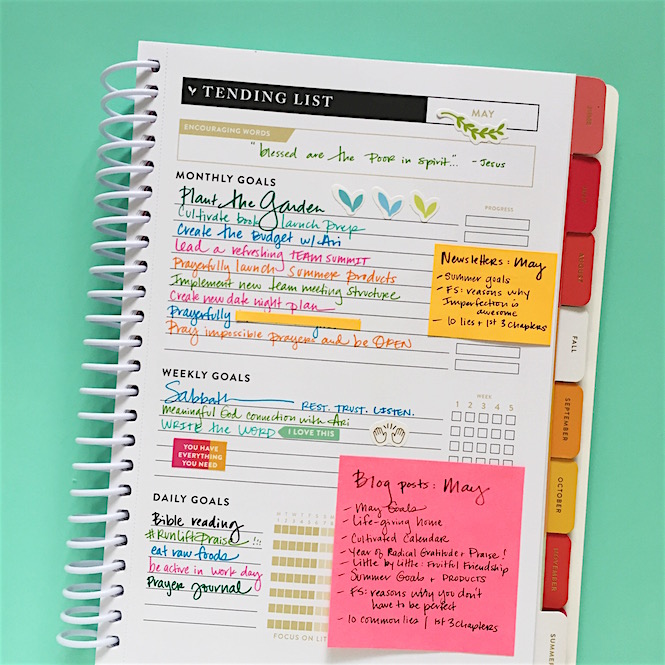 TENDING LIST
MAY
ENCOURAGING WORDS
"blessed are the Poor in spirit..." - Jesus
MONTHLY GOALS
PROGRESS
Plant the Garden
Cultivate book launch prep
Create the Budget w/ Ari
Lead a refreshing TEAM SUMMIT
Prayerfully launch Summer products
Implement new team meeting structure
Create new date night plan
Prayerfully
Pray impossible prayers and be OPEN
Newsletters: May
- Summer goals
- FS: reasons why
Imperfection is
awesome
- 10 lies + 1st 3 chapters
WEEKLY GOALS
WEEK
1 2 3 4 5
Sabbath REST. TRUST. LISTEN.
Meaningful God connection with Ari
WRITE the WORD I LOVE THIS
YOU HAVE
EVERYTHING
YOU NEED
DAILY GOALS
Bible reading
#RunLiftPraise !!
eat raw foods
be active in work day
Prayer Journal
FOCUS ON
Blog posts: May
- May Goals
- Life-giving home
- Cultivated Calendar
- Year of Radical Gratitude + Praise!
- Little by Little: Fruitful Friendship
- Summer Goals + PRODUCTS
- FS: reasons why you don't
have to be perfect
- 10 common lies | 1st 3 chapters
AUGUST
FALL
SEPTEMBER
OCTOBER
NOVEMBER
SUMMER